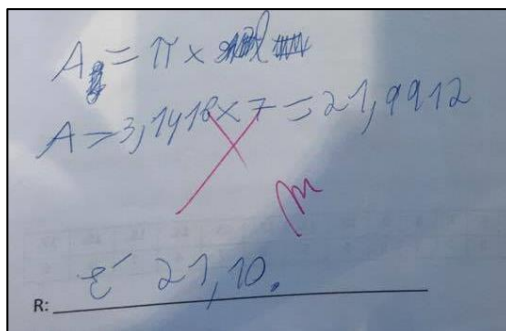 A = π ×
A = 3,1416 × 7 = 21,9912
R: é 21,10.